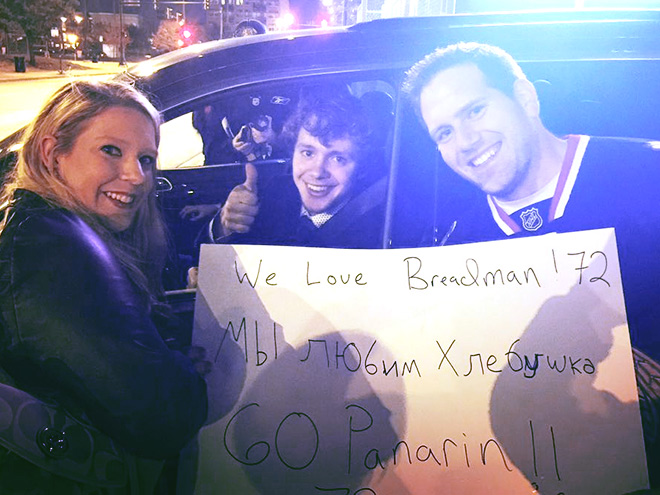 We Love Breadman '72
Мы любим Хлебушка
GO Panarin !!